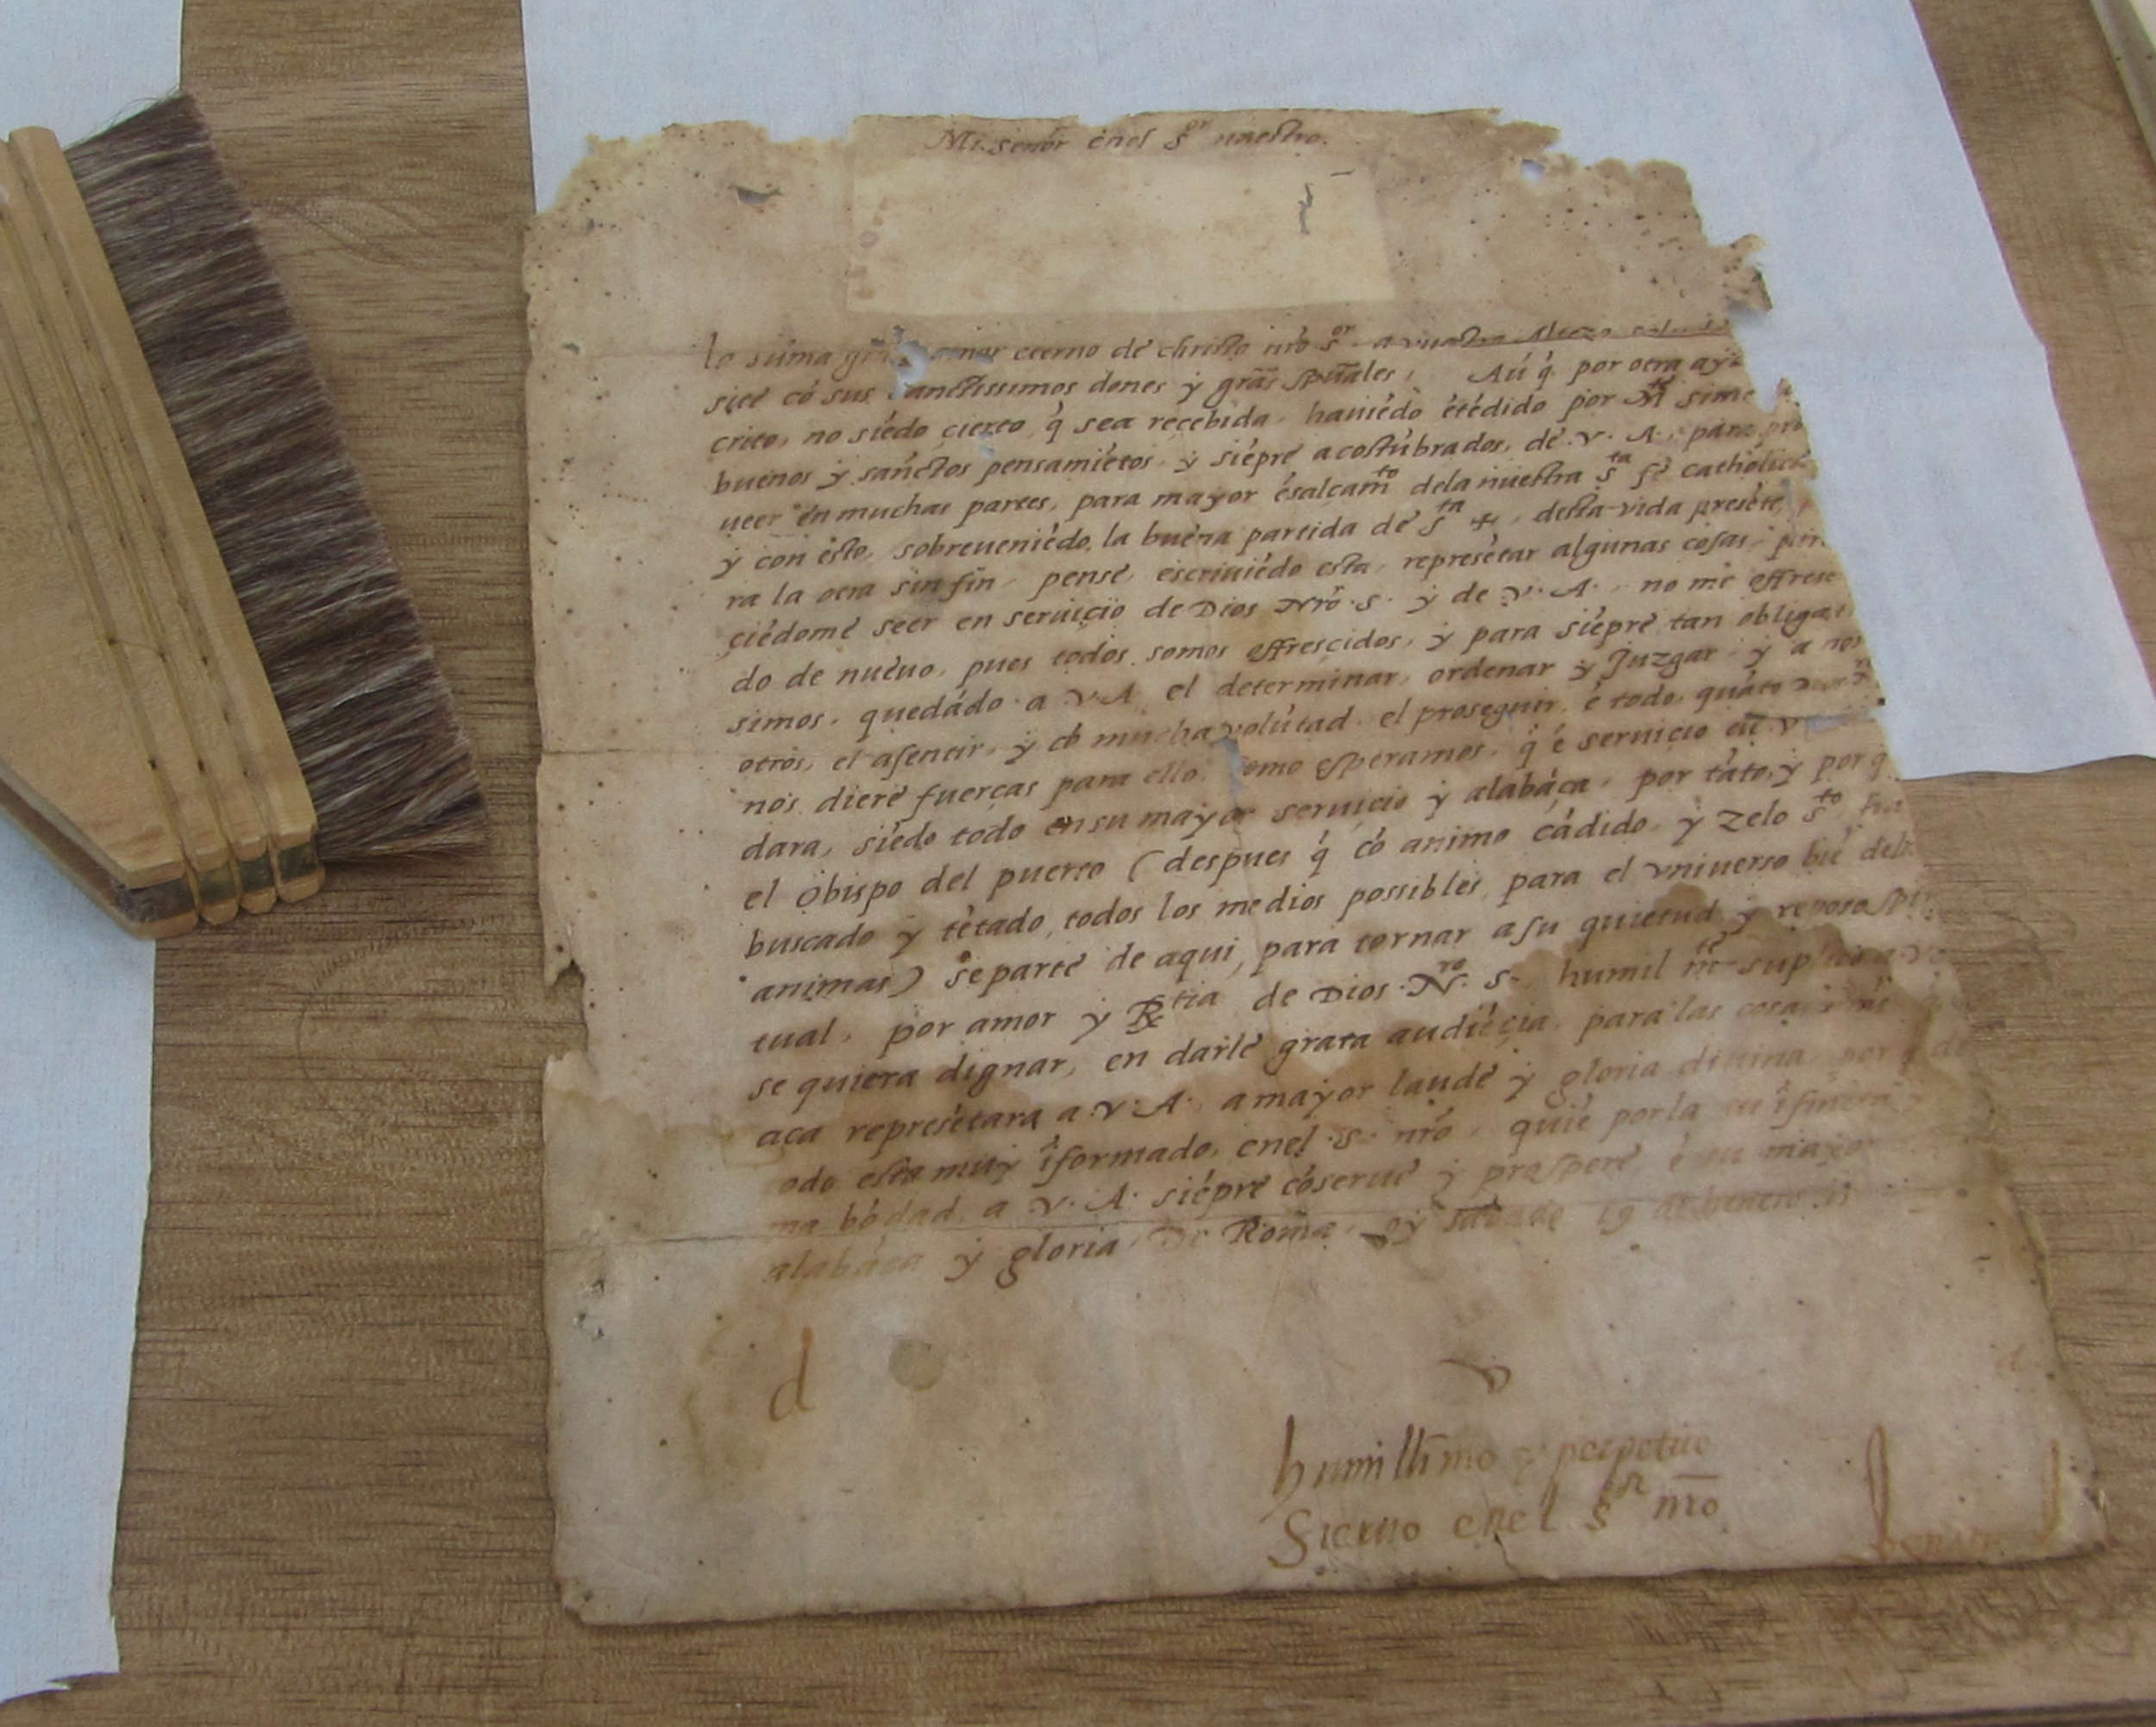 Mi señor enel s^or nuestro.
la súma grā amor eterno de christo nr̄o s^or a vuestra Alteza
siēē có sus sanctissimos dones y grās spūales, Aú q̃ por otra aya
crito, no siédo cierto q̃ sea recebida, haviédo étédido por m^te
buenos y sanctos pensamiétos, y siépre acostúbrados, de .V. A. para pro
ueer en muchas partes, para mayor ésalcam^to dela nuestra s^ta fe catholica
y con ésto, sobreueniédo, la buena partida de s^ta +, desta vida preséte,
ra la otra sin fin, pensé, escriuiédo esta, represétar algunas cosas, prin
ciédome seer en seruicio de Dios Nr̄o .s. y de V. A. no me offrescié
do de nueuo, pues todos somos offrescidos, y para siépre tan obligad
simos, quedádo a V.A. el determinar, ordenar y Juzgar, y a nos
otros, el asentir, y có mucha volútad, el proseguir, é todo, quáto
nos diere fuerças para ello, como esperamos, q̃ é seruicio
dara, siédo todo en su mayor seruicio y alabáça, por táto, y por q̃
el Obispo del puerto (despues q̃ có animo cádido, y zelo s^to, ha
buscado y tétado, todos los medios possibles, para el vniuerso bié delas
animas) se parte de aqui, para tornar a su quietud y reposo spi
tual, por amor y R^tia de Dios .N^ro. S. humil m^te suplico a V.
se quiera dignar, en darle grata audiéçia, para las cosas
aca represétara a V. A., a mayor laude y gloria diuina, por q̃ de
odo esta muy iformado, enel .s. nr̄o, quié por la su ifinita y
ma bódad, a V. A. siépre cóserue y prospere é su mayor
alabáça y gloria De Roma, oy sabado 19 de henero .15
d
humillimo y perpetuo
Sieruo enel s^or nr̄o